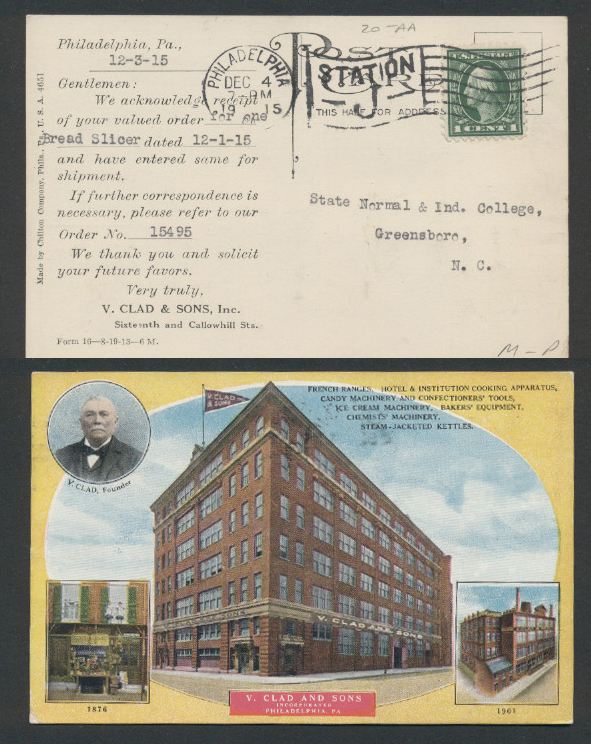 20-AA
Philadelphia, Pa.,
12-3-15
Gentlemen:
We acknowledge receipt
of your valued order for one
Bread Slicer dated 12-1-15
and have entered same for
shipment.
If further correspondence is
necessary, please refer to our
Order No. 15495
We thank you and solicit
your future favors.
Very truly,
V. CLAD & SONS, Inc.
Sixteenth and Callowhill Sts.
Form 16—8-19-13—6 M.
Made by Chilton Company, Phila., Pa., U. S. A. 4651
PHILADELPHIA
DEC 4
7-PM
19 15
STATION
J
POST CARD
THIS HALF FOR ADDRESS
U.S. POSTAGE
1 CENT 1
State Normal & Ind. College,
Greensboro,
N. C.
M-P
V. CLAD
& SONS
FRENCH RANGES, HOTEL & INSTITUTION COOKING APPARATUS,
CANDY MACHINERY AND CONFECTIONERS' TOOLS,
ICE CREAM MACHINERY, BAKERS' EQUIPMENT,
CHEMISTS' MACHINERY,
STEAM-JACKETED KETTLES.
V. CLAD, Founder
V. CLAD AND SONS
1876
V. CLAD AND SONS
INCORPORATED
PHILADELPHIA, PA
1901